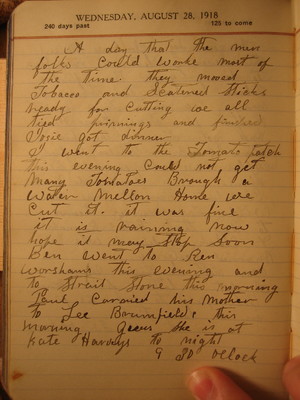 WEDNESDAY, AUGUST 28, 1918
240 days past 125 to come
A day that the men
folks could worke most of
the time. they mowed
Tobacco and Scatered Sticks
ready for Cutting we all
tied primings and finised
Josie got dinner
I went to the Tomato patch
this evening Could not get
many Tomatoes Brough a
Water Mellon Home we
Cut it. it was fine
it is raining now
hope it may stop soon
Ben went to Ren
Worshams this evening and
to Strait Stone this morning
Paul Carried his Mother
to Lee Brumfields this
morning Guess she is at
Kate Hardys to night
9 30 oclock